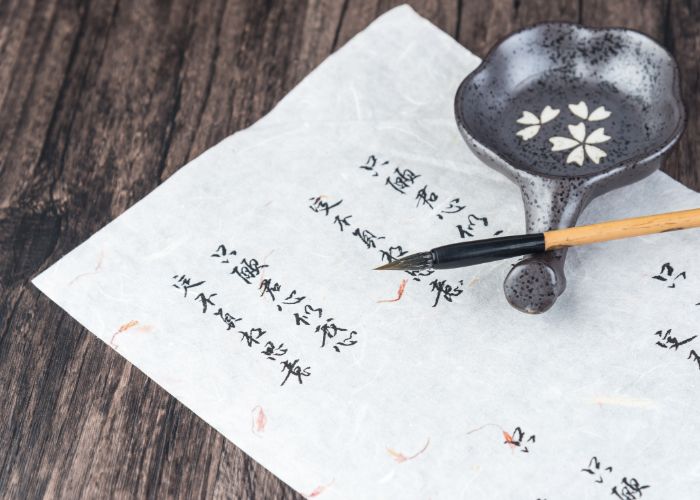 只
定
只願君心似
定不負相意
只願君心似我心
定不負相思意
只願
只